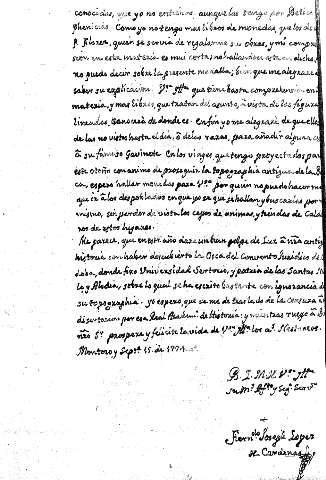 conocidas, que yo no entiendo, aunque las tengo por Betico
Phenicias. Como yo no tengo mas libros de monedas, que los de
P. Florez, quien se sirvio de regalarme sus obras, y mi compre
sion en esta materia es mui corta, no hallandose esta en dichos,
no puedo decir sobre la presente medalla; sino que me alegrare
saber su explicacion. que tiene basta comprehension en
materia, y mas libros, que tratan del asunto, à vista de las figuras
lineadas, conocerà de donde es. En fin yo me alegrare de que ellas
de las no vistas hasta el dia, ò de las raras, para añadir alguna cosa
à su famoso Gavinete. En los viages que tengo proyectados para
este otoño con animo de proseguir la topographia antigua de la Be
ca, espero hallar monedas para por quien no puedo hacer mas
que ir à los despoblados en que yo se que se hallan, y buscarlas por
mismo, sin perder de vista los cepos de animas, y tiendas de Calde
ros de estos lugares.
Me parece, que en este año dare un buen golpe de Luz à nra antigua
historia con haver descubierto la Osca del Convento Juridico de
doba, donde fixo Universidad Sertorio, y patria de las Santas
lo y Alodia, sobre lo qual se ha escrito bastante con ignorancia de
su topographia. yo espero, que se me de traslado de la censura à
disertacion por esa Real Academia de Historia: y mientras ruego à
nro Sr prospere y felicite la vida de los as. Menester.
Montoro y Septe 15. de 1774.
B. L. M. V.
su Mr Afto y Segr Serr
Fernando Joseph Lopez
de Cardenas